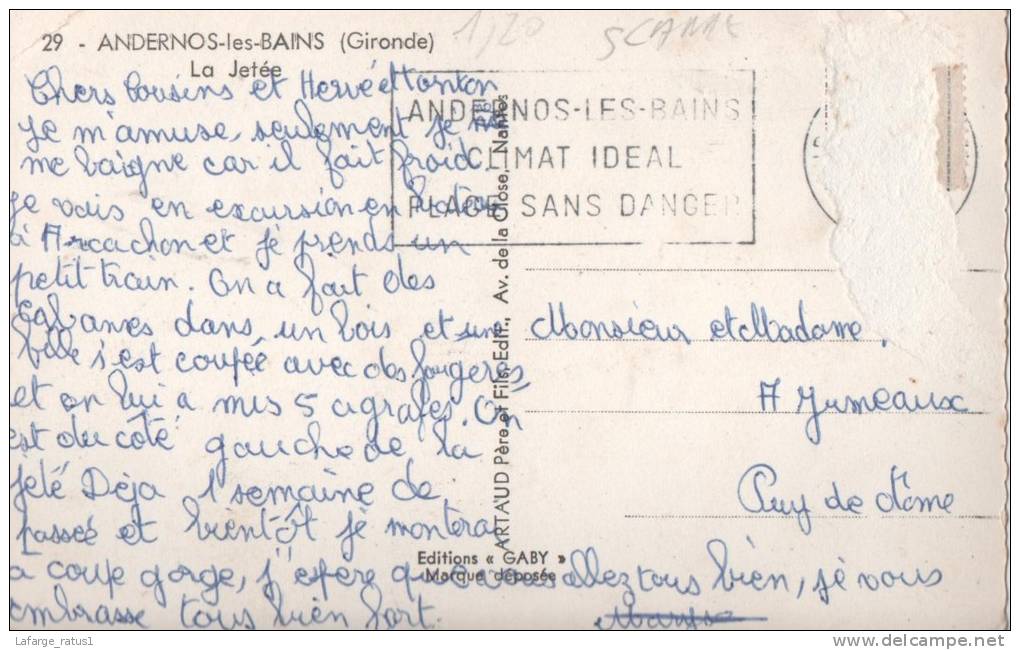 29 - ANDERNOS-les-BAINS (Gironde)
La Jetée
1,20
Chers Cousins et Hervé et
Je m'amuse, seulement je ne
me baigne car il fait froid.
Je vais en excursion en bateau
à Arcachon et je prends un
petit train. On a fait des
cabanes dans un bois et une
fille s'est coupée avec des fougères
et on lui a mis 5 agrafes. On
est du côté gauche de la
jeté Déja 1 semaine de
passée et bientôt je monterai
a coupe gorge, j'espère que vous allez tous bien, je vous
embrasse tous bien fort.
ANDERNOS-LES-BAINS
CLIMAT IDEAL
PLAGE SANS DANGER
ARTAUD Père et Fils, Edit., Av. de la Close, Nantes
Monsieur et Madame
A Jumeaux
Puy de Dôme
Editions « GABY »
Marque déposée
Lafarge_ratus1
delcampe.net